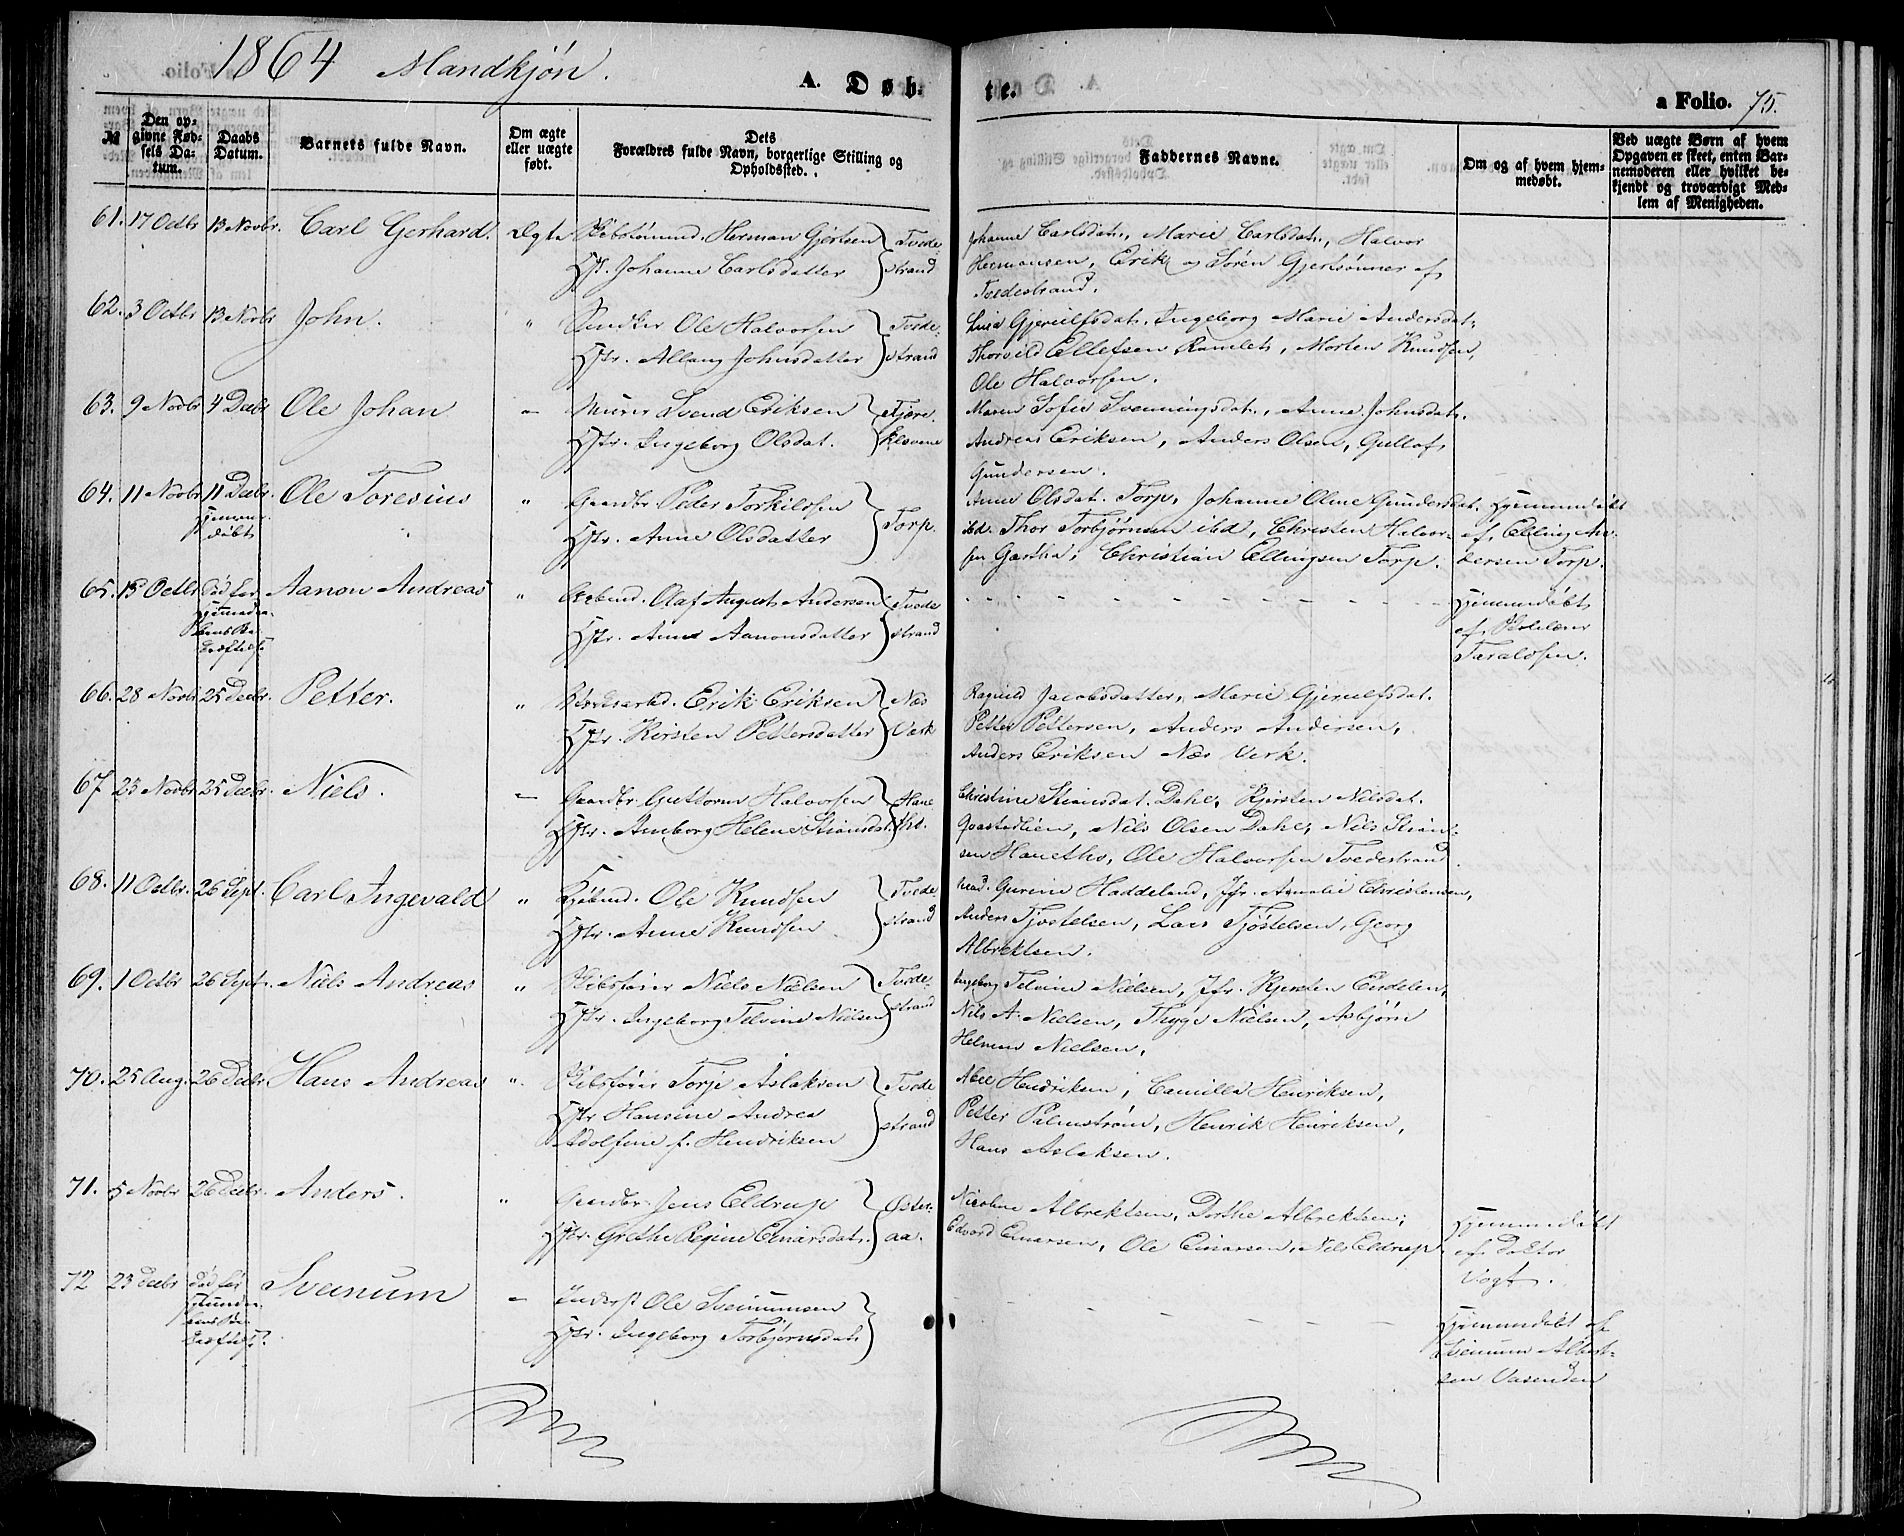 1864 Mandkjøn. A. Døb- te. a Folio. 75.
№
Den op-
givne Fød-
sels Da-
tum.
Daabs
Datum.
Barnets fulde Navn.
Om ægte
eller uægte
født.
Dets
Forældres fulde Navn, borgerlige Stilling og
Opholdssted.
Faddernes Navne.
Om og af hvem hjem-
medøbt.
Ved uægte Børn af hvem
Opgaven er skeet, enten Bar-
nemoderen eller hvilket be-
kjendt og troværdigt Med-
lem af Menigheden.
61. 17 Octbr 13 Novbr. Carl Gerhard. Ægte Skibstømmd. Herman Gjertsen Tvede-
Hstr. Johanne Carlsdatter strand
Johanne Carlsdat., Marie Carlsdat., Halvor
Hermansen, Erik og Sören Gjertsönner af
Tvedestrand.
62. 3 Octbr 13 Novbr John. " Ole Halvorsen Tvede-
Hstr. Allaug Johnsdatter strand
Lisa Gjerulfsdat., Ingeborg Marie Andersdat.
Thorvild Ellefsen Ramlet, Morten Knudsen,
Ole Halvorsen.
63. 9 Novbr 4 Decbr Ole Johan " Murer Svend Eriksen
Hstr. Ingeborg Olsdat.
Maren Sofie Svenningsdat., Anne Johnsdat.
Andreas Eriksen, Anders Olsen, Gullof
Gundersen.
64. 11 Novbr 11 Decbr. Ole Toresius " Gaardbr Peder Torkildsen
hjemme-
døbt Hstr. Anne Olsdatter Torp.
Anne Olsdat. Torp, Johanne Oline Gundersdat.
ibd. Thor Torbjørnsen ibd, Christen Halvor-
sen Gartha, Christian Ellingsen Torp.
Hjemmedøbt
af Elling An-
dersen Torp.
65. 13 Octbr Død før Aanon Andreas " Olaf August Andersen Tvede
Hstr. Anne Aanonsdatter strand
Hjemmedøbt
af
Taraldsen.
66. 28 Novbr 25 Decbr. Petter. " Erik Eriksen Næs
Hstr. Kirsten Pettersdatter Verk
Ragnild Jacobsdatter, Marie Gjerulfsdat.
Petter Pettersen, Anders Andersen,
Anders Eriksen Næs Verk.
67 23 Novbr 25 Decbr. Niels. " Gaardbr Guttorm Halvorsen Hane
Hstr. Amborg Helene Stiansdat. tho.
Christine Stiansdat. Dahl, Kjersten Nilsdat.
Goastedlien, Nils Olsen Dahl, Nils Stian-
sen Hanetho, Ole Halvorsen Tvedestrand.
68. 11 Octbr. 26 Sept. Carl Ingevald " Ole Knudsen Tvede
Hstr. Anne Knudsen strand
Mad. Gurine Haddeland, Jfr. Amalie Christensen,
Anders Tjostelsen, Lars Tjøstelsen, Georg
Albrektsen.
69. 1 Octbr 26 Sept. Niels Andreas " Skibsfører Niels Nielsen Tvede-
Hstr. Ingeborg Telvine Nielsen strand
Ingeborg Telvine Nielsen, Jfr. Kjersten Endelen,
Nils A. Nielsen, Thyge Nielsen, Asbjørn
Helmer Nielsen.
70. 25 Aug. 26 Decbr Hans Andreas ". Skibsfører Torje Aslaksen Tvede
Hstr Hansine Andrea strand
Adolfine f. Hendriksen
Abel Hendriksen, Camilla Henriksen,
Petter Palmstrøm, Henrik Henriksen,
Hans Aslaksen.
71. 5 Novbr 26 Decbr. Anders. " Gaardbr. Jens Eldrup Øster-
Hstr. Grethe Regine Einarsdat. aa.
Nicoline Albrektsen, Dorthe Albrektsen,
Edvard Einarsen, Ole Einarsen, Nils Eldrup
Hjemmedøbt
af Doktor
Vogt.
72 23 Decbr Død før Sveinum " Inderst Ole Sveinumsen
Hstr. Ingeborg Torbjørnsdat.
Hjemmedøbt af
Sveinum Albert-
sen Vasenden